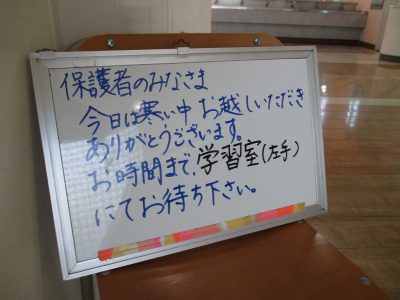 保護者のみなさま
今日は寒い中 お越しいただき
ありがとうございます。
お時間まで、学習室(左手)
にてお待ち下さい。